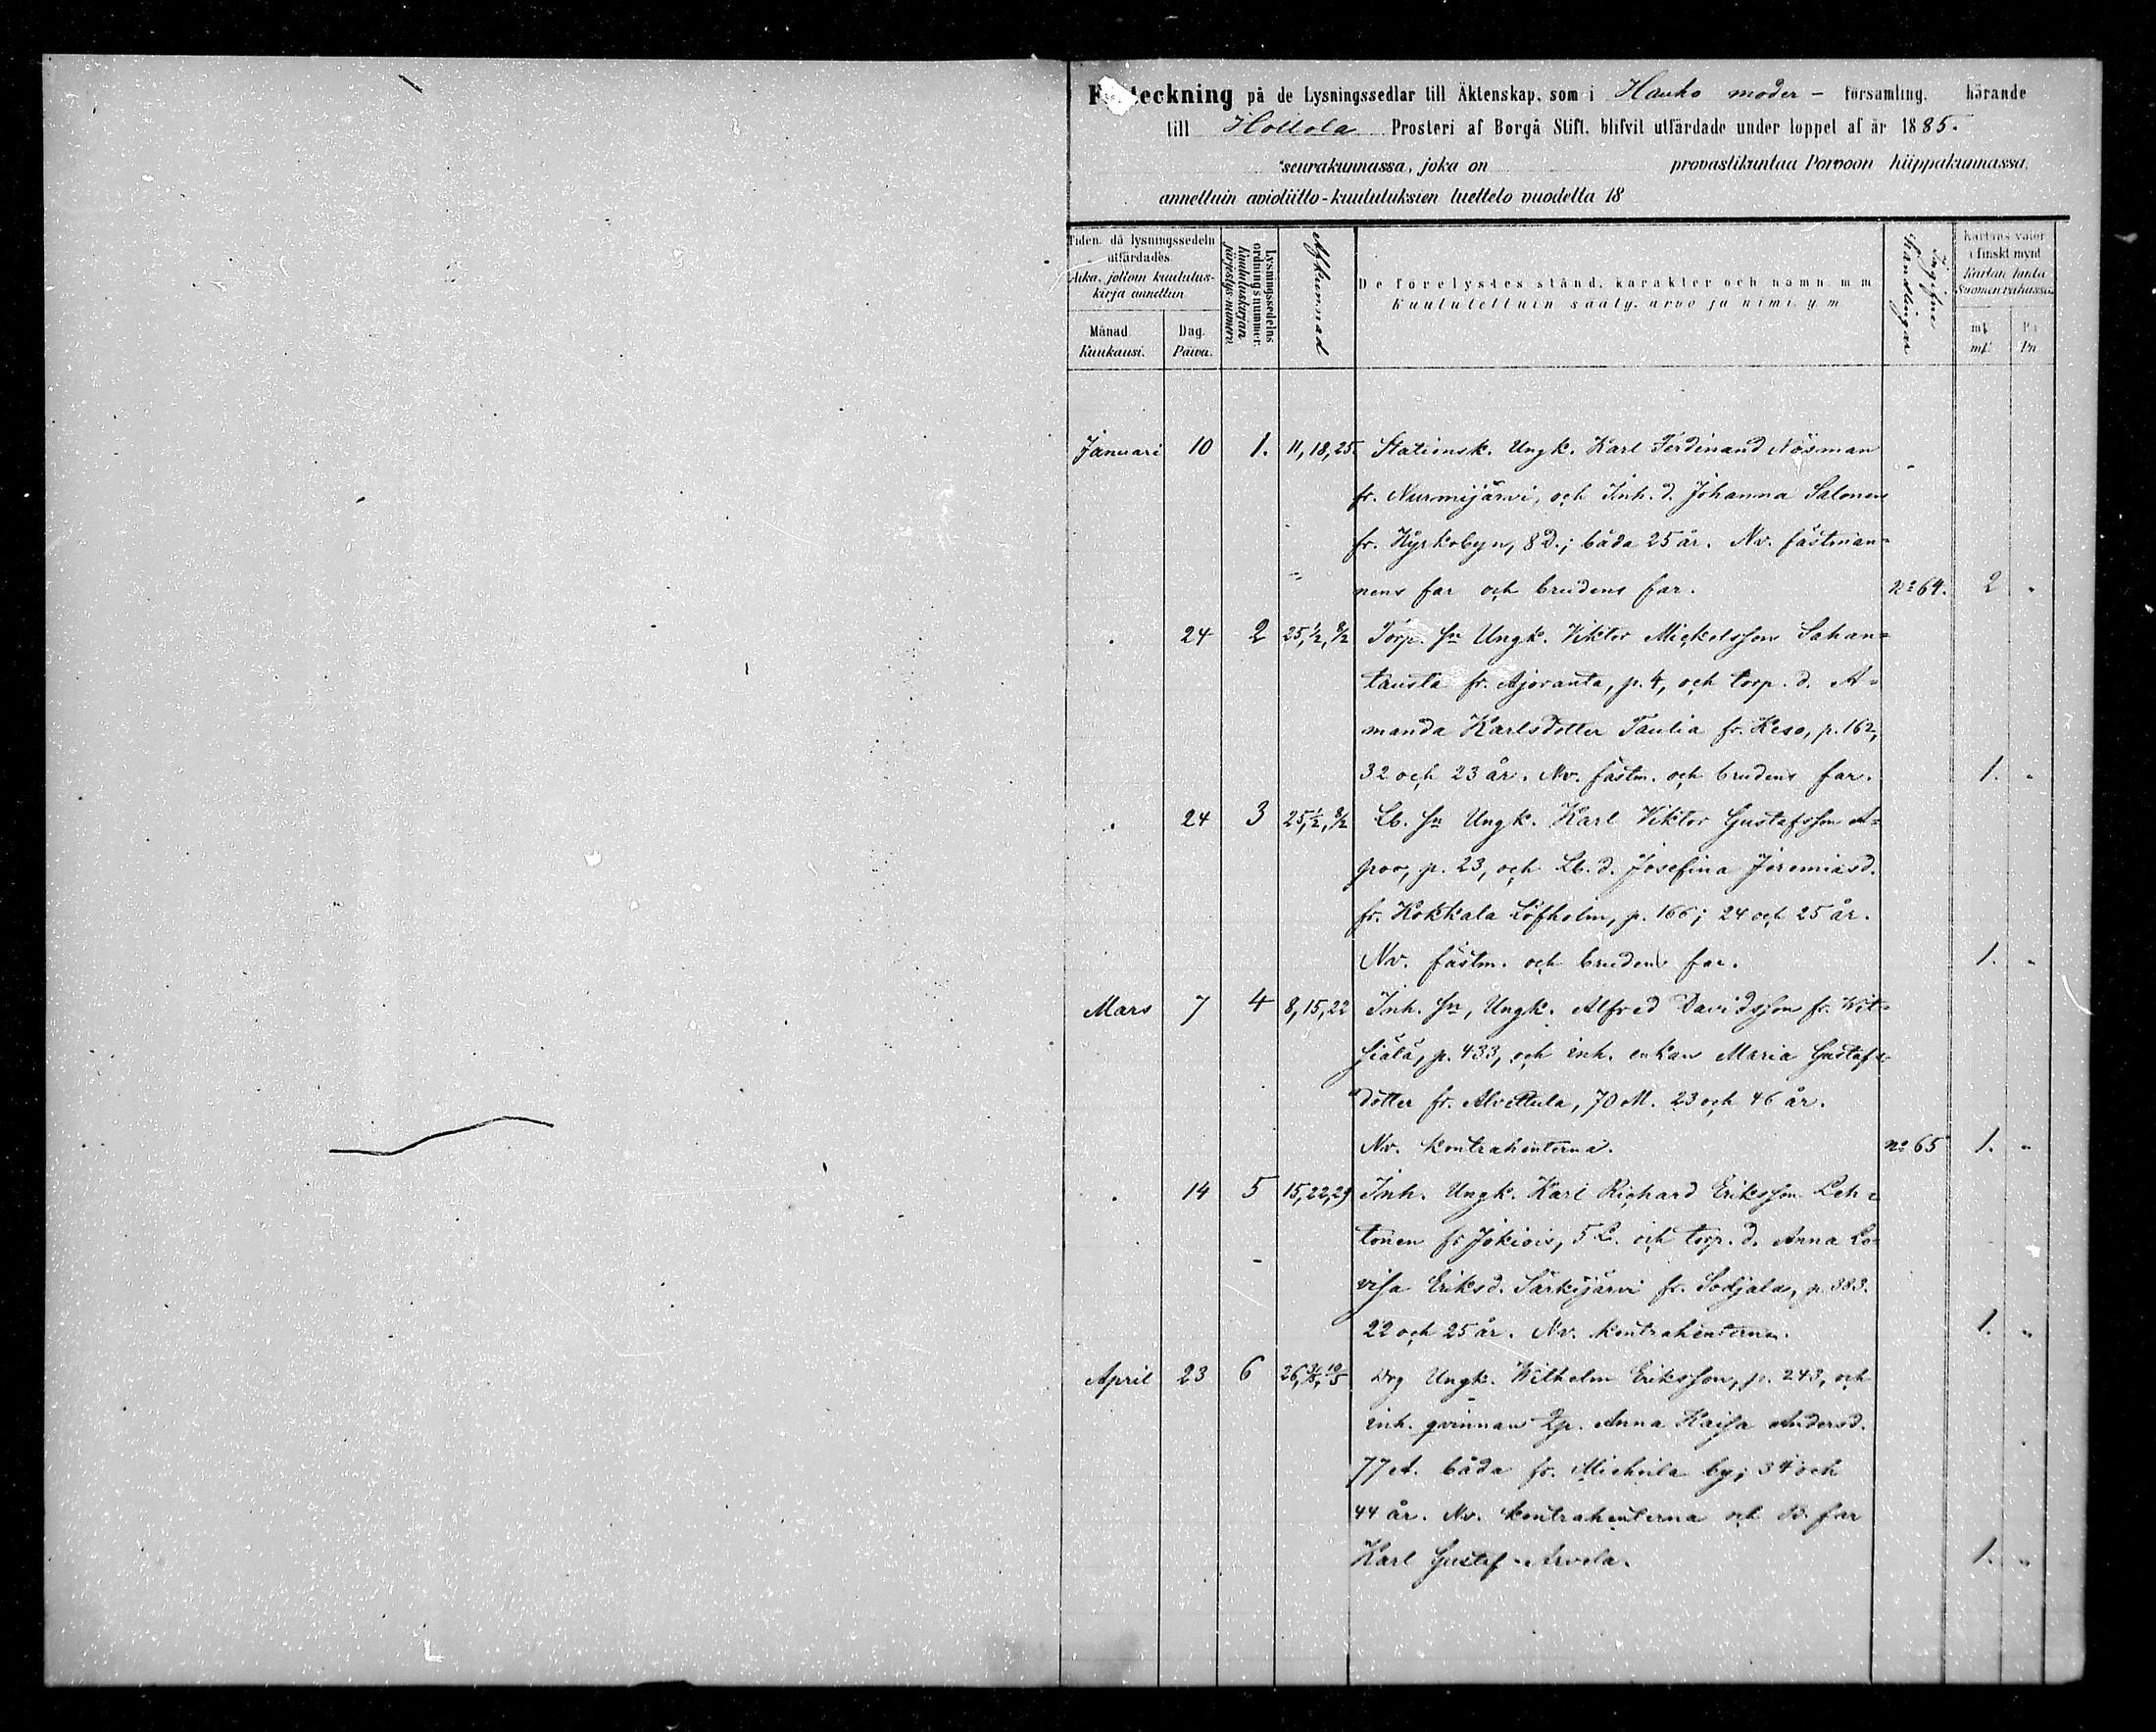 Förteckning på de Lysningssedlar till Äktenskap, som i Hauho moder- församling, hörande
till Hollola Prosteri af Borgå Stift, blifvit utfärdade under loppet af år 1885.
seurakunnassa, joka on provastikuntaa Porvoon hiippakunnassa,
annettuin avioliitto-kuulutuksien luettelo vuodelta 18
Tiden, då lysningssedeln utfärdades.
Aika, jolloin kuulutus-kirja annettiin
Månad. Kuukausi.
Dag. Päiwä.
Lysningssedelns ordningsnummer.
Kuulutuskirjan järjestys-numero
Afkunnad
De förelystes stånd, karakter och namn m m
Kuulutettuin sääty, arvo ja nimi y m
Ingifne handlingar
Kartans valör i finskt mynt
Kartan hinta Suomen rahassa.
mk Pi
mk Pn
Januari 10 1. 11, 18, 25. Stationsk. Ungk. Karl Ferdinand Nösman
fr. Nurmijärvi, och Inh. d. Johanna Salonen
fr. Kyrkobyn, 8 D.; båda 25 år. Nv. fästman=
nens far och brudens far. No 64. 2 "
" 24 2 25, 1/2, 8/2 Torp. sn Ungk. Viktor Mickelsson Sahan=
tausta fr. Ajoranta, p. 4, och torp. d. A=
manda Karlsdotter Taulia fr. Keso, p. 162,
32 och 23 år. Nv. fästm. och brudens far. 1. "
" 24 3 25, 1/2, 8/2 Lb. sn Ungk. Karl Viktor Gustafsson A=
poo, p. 23, och Lb. d. Josefina Jeremiasd.
fr. Kokkala Löfholm, p. 166; 24 och 25 år.
Nv. fästm. och brudens far. 1. "
Mars 7 4 8, 15, 22 Inh. sn, Ungk. Alfred Davidsson fr. Wit=
siälä, p. 433, och inh. enkan Maria Gustafs=
dotter fr. Alvettula, 70 M. 23 och 46 år.
Nv. kontrahenterna. No 65 1. "
" 14 5 15, 22, 29 Inh. Ungk. Karl Richard Eriksson Leh=
tonen fr Jokiois, 5 L. och torp. d. Anna Lo=
visa Eriksd. Särkijärvi fr. Sodjala, p. 383.
22 och 25 år. Nv. kontrahenterna. 1. "
April 23 6 26, 3/5, 10/5 Drg Ungk. Wilhelm Eriksson, p. 243, och
inh. qvinnan Anna Kaisa Andersd.
77 A. båda fr. Miehoila by; 34 och
44 år. Nv. kontrahenterna och B. far
Karl Gustaf Arvela. 1. "